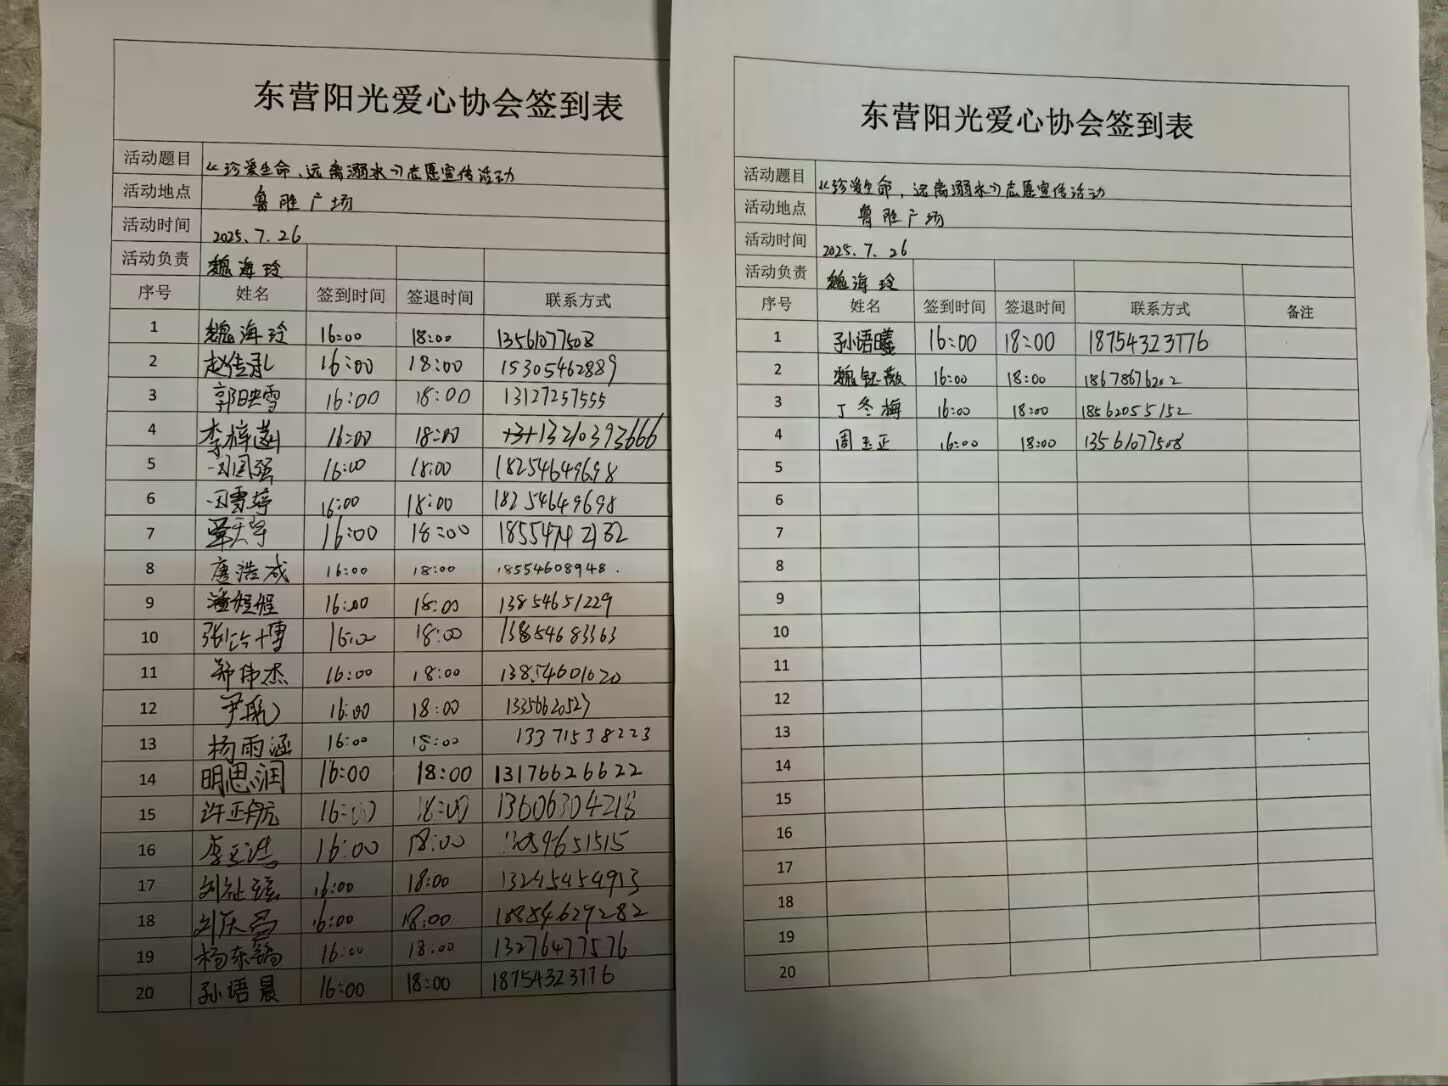 东营阳光爱心协会签到表
活动题目 《珍爱生命，远离溺水》志愿宣传活动
活动地点 鲁胜广场
活动时间 2025.7.26
活动负责 魏海玲
序号 姓名 签到时间 签退时间 联系方式
1 魏海玲 16:00 18:00 13561077508
2 赵佳承 16:00 18:00 15305462889
3 郭映雪 16:00 18:00 13127257555
4 李梓 16:00 18:00
5 闪国强 16:00 18:00 18254649698
6 闪雪婷 16:00 18:00 18254649698
7 16:00 18:00 18554742132
8 唐浩成 16:00 18:00 18554608948.
9 潘煜煜 16:00 18:00 13854651229
10 张 博 16:00 18:00 13854683363
11 郑伟杰 16:00 18:00 13854601020
12 尹航 16:00 18:00 13356620527
13 杨雨涵 16:00 18:00 13371538223
14 明思润 16:00 18:00 13176626622
15 许正航 16:00 18:00 13606304218
16 李 16:00 18:00
17 刘祉弦 16:00 18:00 13245454913
18 刘庆 16:00 18:00 18854629282
19 杨东 16:00 18:00 13276477576
20 孙语晨 16:00 18:00 18754323776
东营阳光爱心协会签到表
活动题目 《珍爱生命，远离溺水》志愿宣传活动
活动地点 鲁胜广场
活动时间 2025.7.26
活动负责 魏海玲
序号 姓名 签到时间 签退时间 联系方式 备注
1 孙语曦 16:00 18:00 18754323776
2 魏钰薇 16:00 18:00 18678676202
3 丁冬梅 16:00 18:00 18562055152
4 周玉正 16:00 18:00 13561077508
5
6
7
8
9
10
11
12
13
14
15
16
17
18
19
20